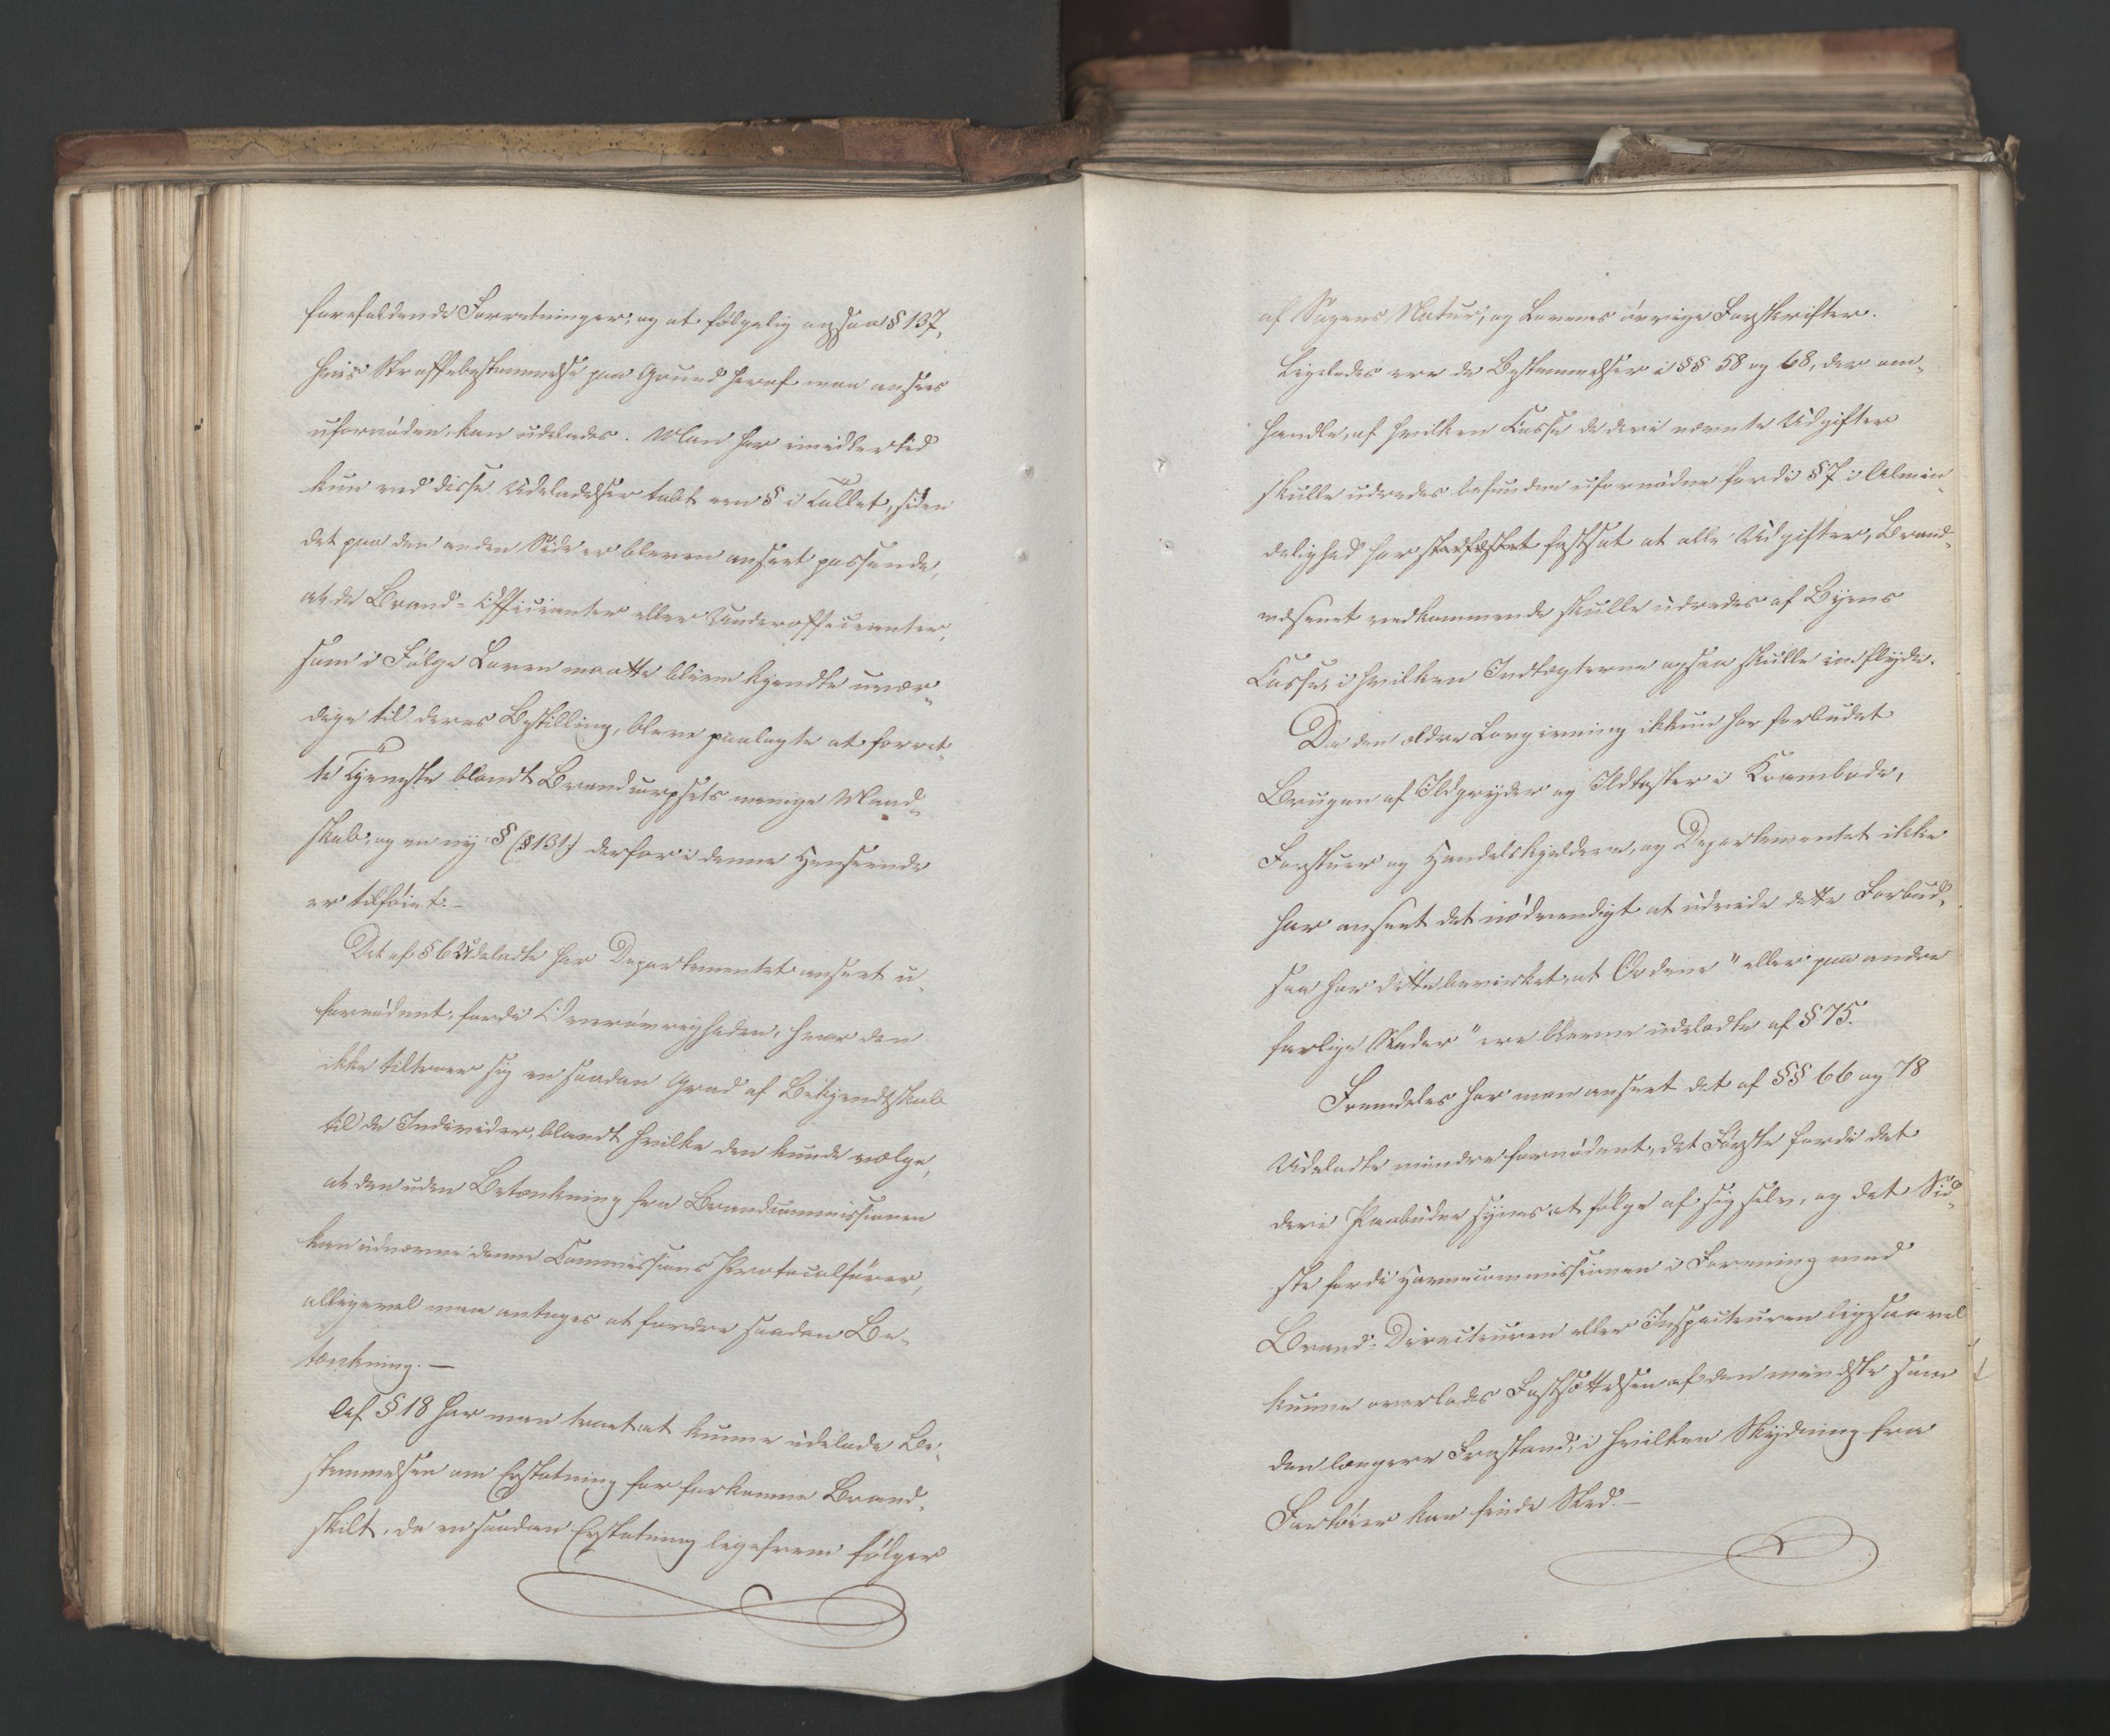 forefaldende Forretninger, og at følgelig ogsaa § 137,
hvis Straffebestemmelse paa Grund heraf maa ansees
ufornøden, kan udelades. Man har imidlertid
kun ved disse Udeladelser tabt een § i Tallet, siden
det paa den anden Side er bleven anseet passende,
at de Brand-Officianter eller Underofficianter,
som i Følge Loven maatte blive kjendte uvær-
dige til deres Bestilling, bleve paalagte at forret-
te Tjeneste blandt Brandcorpsets menige Mand-
skab, og en ny § (§ 131) derfor i denne Henseende
er tilføiet.-
Det af § 6 Udeladte har Departementet anseet u-
fornødent, fordi Overøvrigheden, hvor den
ikke tiltroer sig en saadan Grad af Bekjendtskab
til de Individer, blandt hvilke den kunde vælge,
at den uden Betænkning fra Brandcommissionen
kan udnævne denne Commissions Protocolfører,
alligevel maa antages at fordre saadan Be-
tænkning. —
Af § 18 har man troet at kunne udelade Be-
stemmelsen om Erstatning for forkomne Brand-
skilt, da en saadan Erstatning ligefrem følger
af Sagens Natur, og Lovens øvrige Forskrifter.
Ligeledes ere de Bestemmelser i §§ 58 og 68, der om-
handle, af hvilken Casse de deri nævnte Udgifter
skulle udredes befundne ufornødne fordi § 7 i Almin-
delighed har stadfæstet fastsat at alle Udgifter, Brand-
væsenet vedkommende skulle udredes af Byens
Casse, i hvilken Indtægterne ogsaa skulle indflyde.
Da den ældre Lovgivning ikkun har forbudet
Brugen af Ildgryder og Ildtester i Krambode,
Forstuer og Handelskjeldere, og Departementet ikke
har anseet det nødvendigt at udvide dette Forbud,
saa har dette bevirket, at Ordene "eller paa andre
farlige Steder" ere blevne udeladte af § 75.
Fremdeles har man anseet det af §§ 66 og 78
Udeladte mindre fornødent, det Første fordi det
deri Paabudne synes at følge af sig selv, og det Sid-
ste fordi Havnecommissionen i Forening med
Brand-Directeuren eller Inspecteuren ligesaavel
kunne overlades Fastsættelsen af den mindste som
den længere Frastand, i hvilken Skydning fra
Fartøier kan finde Sted.-